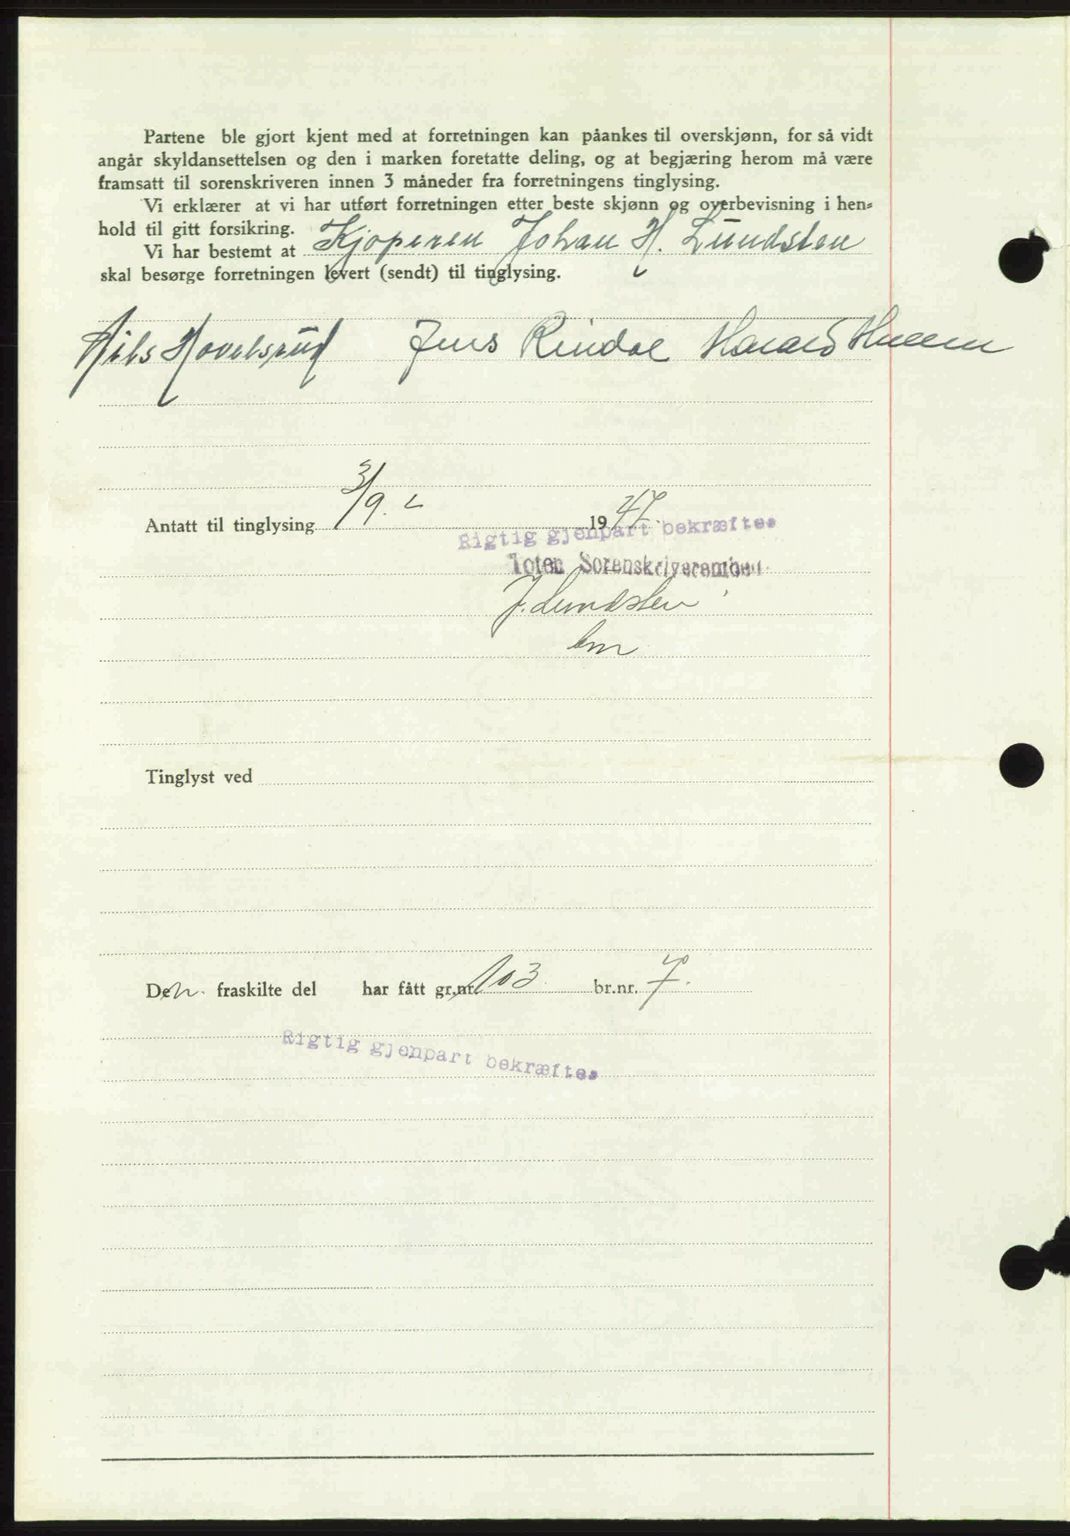 Partene ble gjort kjent med at forretningen kan påankes til overskjønn, for så vidt
angår skyldansettelsen og den i marken foretatte deling, og at begjæring herom må være
framsatt til sorenskriveren innen 3 måneder fra forretningens tinglysing.
Vi erklærer at vi har utført forretningen etter beste skjønn og overbevisning i hen-
hold til gitt forsikring.
Vi har bestemt at Kjøperen Johan H. Lundsten
skal besørge forretningen levert (sendt) til tinglysing.
Nils Hovelsrud Jens Rindal Harald
Antatt til tinglysing 3/9. 1947.
Rigtig gjenpart bekræftes
Toten Sorenskriverembed
J. Lundsten
Tinglyst ved
Den fraskilte del har fått gr.nr. 103 br.nr. 7.
Rigtig gjenpart bekræftes